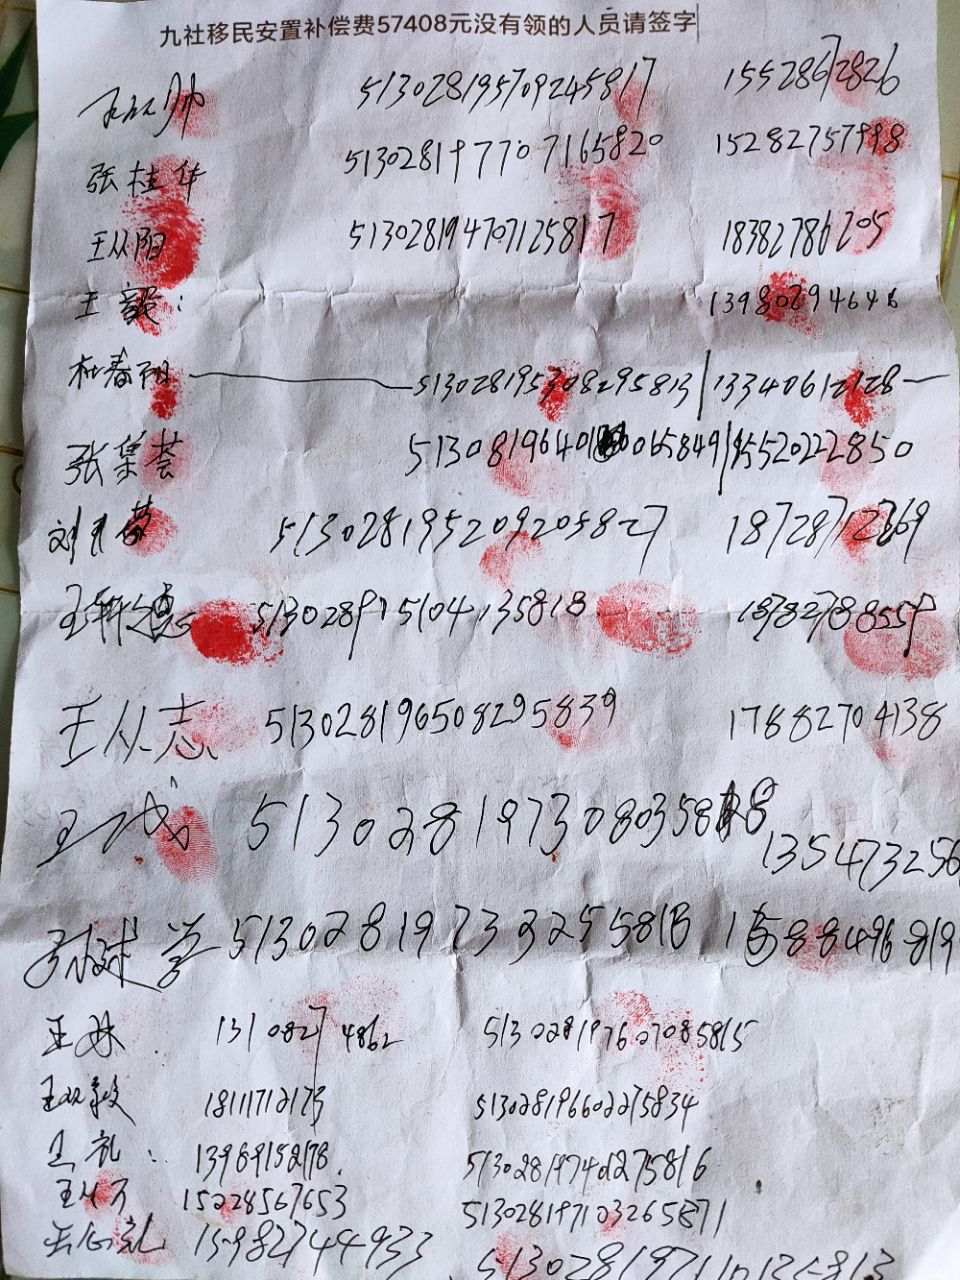 九社移民安置补偿费57408元没有领的人员请签字
帅 513028195709245817 15528672826
张桂华 513028197707165820 15282757998
王从阳 513028194707125817 18382786205
王毅: 13980294646
杜春阳 513028195308295813 13340612128
张菜荟 51308196401065849 15520222850
刘 513028195209205827 18728712769
王 513028195104135818 18782788559
王从志 513028196508295839 17882704138
王成 513028197308035818 135473256
张 学 51302819733255818 1588496819
王林 13108274862 513028197607085815
王 毅 18111712173 513028196602275834
王礼: 13989152178 513028197402275816
王从万 15228567653 513028197103265871
王 礼 15982744933 513028197110125813